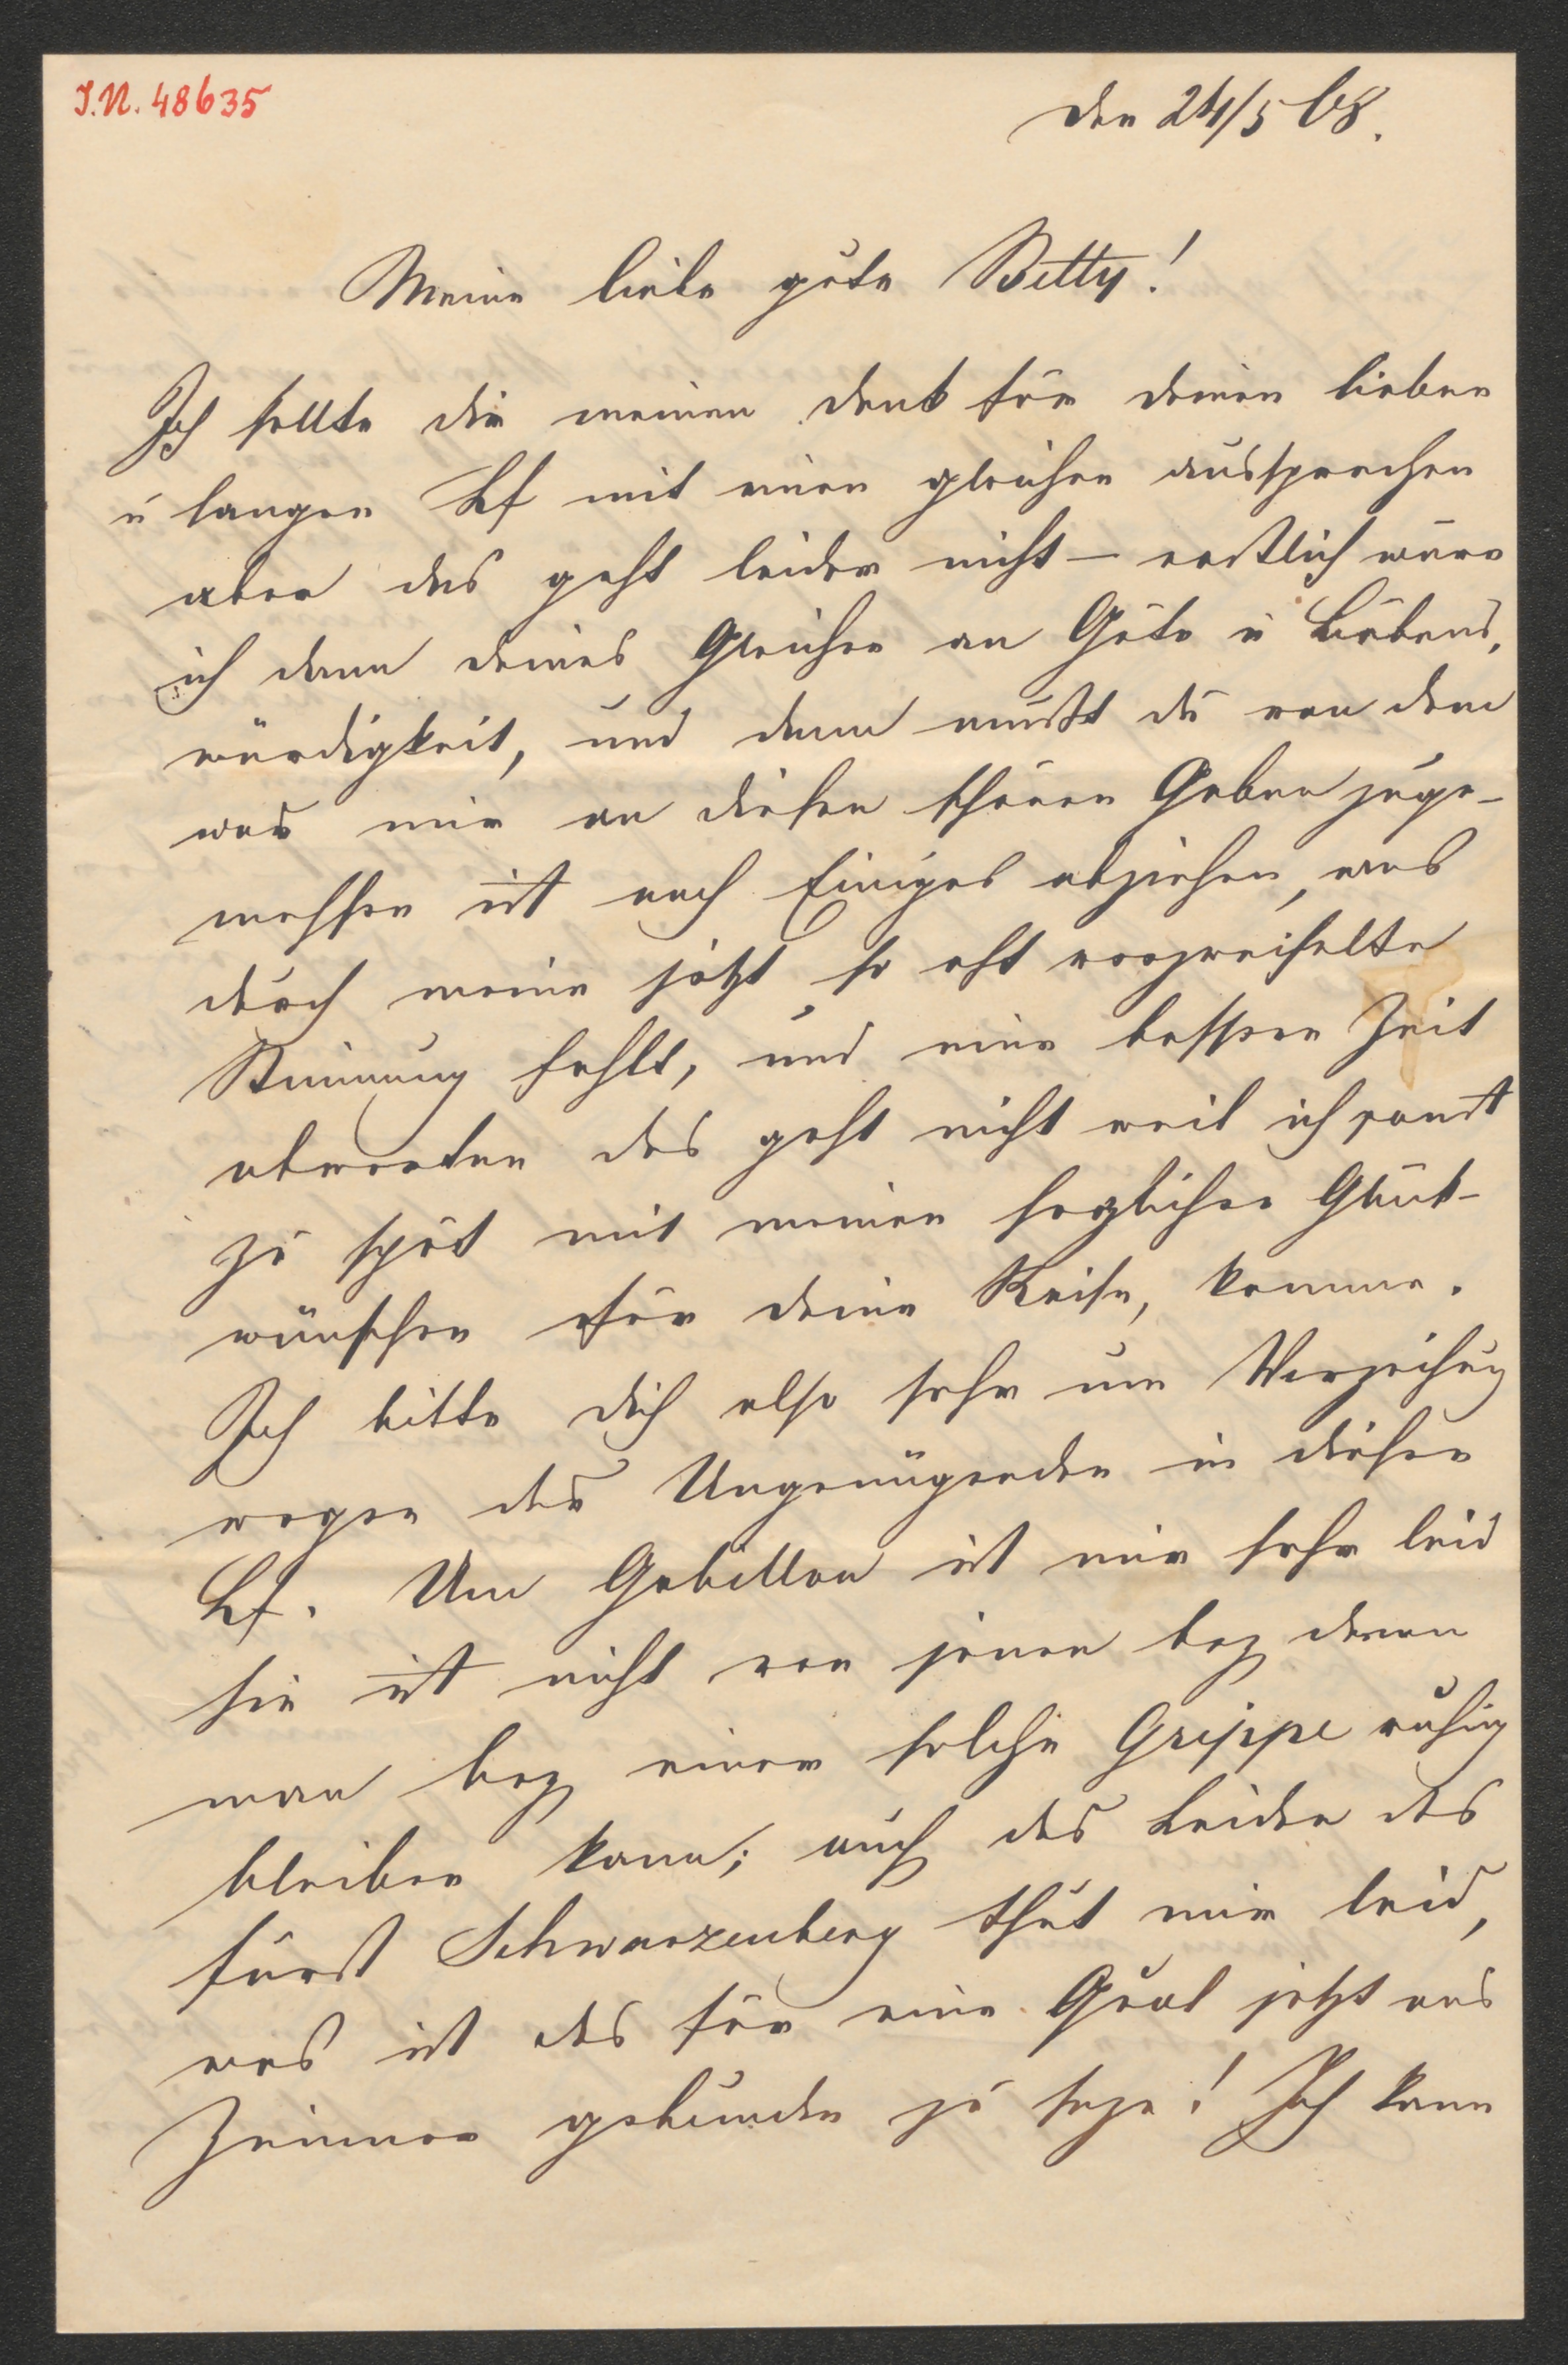 I.N. 48635
den 24/5 68.
Meine liebe gute Betty!
Ich sollte dir meinen Dank für deinen lieben
u langen Bf mit einen gleichen aussprechen
aber das geht leider nicht — erstlich wäre
ich dann deines Gleichen an Güte u Liebens,
würdigkeit, und dann mußt du von dem
was mir an diesen schönen Gaben zuge-
messen ist noch Einiges abziehen, was
durch meine jetzt so oft verzweifelte
Stimmung fehlt, und eine bessere Zeit
abwarten das geht nicht weil ich sonst
zu spät mit meinen herzlichen Glück-
wünschen für deine Reise, komme.
Ich bitte dich also sehr um Verzeihung
wegen des Ungenügenden in diesen
Bf. Um Gabillon ist mir sehr leid
sie ist nicht von jenen bez denen
man bez einer solchen Grippe ruhig
bleiben kann; auch das Leiden des
Fürst Schwarzenberg thut mir leid,
was ist das für eine Qual jetzt ans
Zimmer gebunden zu sein! Ich kann